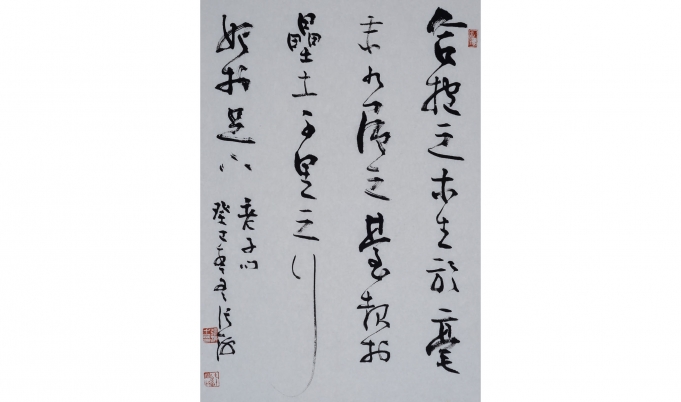 合抱之木生於毫
末九層之臺起於
壘土千里之行
始於足下
老子句
癸巳